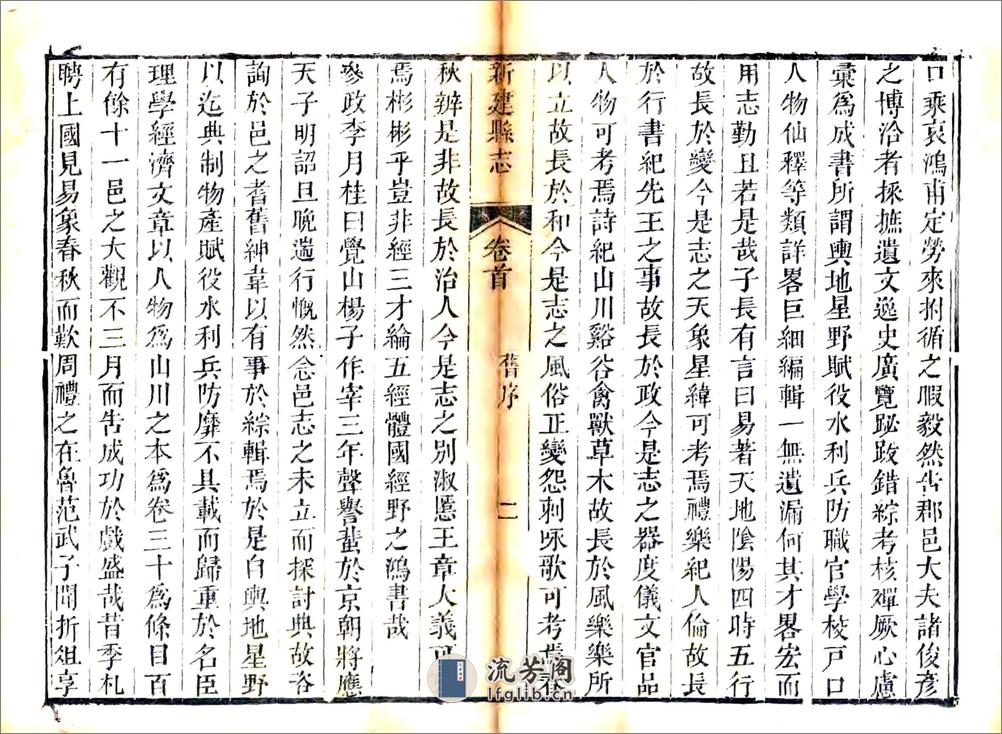 口乘哀鴻甫定勞來拊循之暇毅然告郡邑大夫諸俊彦
之博洽者採摭遺文逸史廣覽跋錯綜考核殫厥心慮
彙爲成書所謂輿地星野賦役水利兵防職官學校戸口
人物仙釋等類詳畧巨細編輯一無遺漏何其才畧宏而
用志勤且若是哉子長有言曰易著天地陰陽四時五行
故長於變今是志之天象星緯可考焉禮樂紀人倫故長
於行書紀先王之事故長於政今是志之器度儀文官品
人物可考焉詩紀山川谿谷禽獸草木故長於風樂樂所
以立故長於和今是志之風俗正變怨刺咏歌可考焉春
新建縣志
卷首
舊序
二
秋辨是非故長於治人今是志之别淑慝王章大義可
焉彬彬乎豈非經三才綸五經體國經野之鴻書哉
參政李月桂曰覺山楊子作宰三年聲譽蜚於京朝將應
天子明詔旦晩遄行慨然念邑志之未立而探討典故咨
詢於邑之耆舊紳韋以有事於綜輯焉於是自輿地星野
以迄典制物產賦役水利兵防靡不具載而歸重於名臣
理學經濟文章以人物爲山川之本爲卷三十爲條目百
有餘十一邑之大觀不三月而告成功於戲盛哉昔季札
聘上國見易象春秋而歎周禮之在魯范武子聞折俎享
流芳阁
lfglib.cn